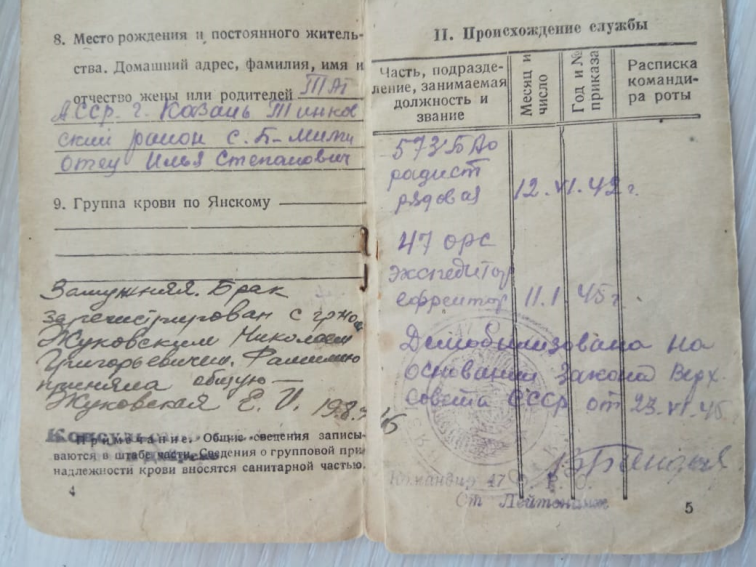 8. Место рождения и постоянного житель-
ства. Домашний адрес, фамилия, имя и
отчество жены или родителей ТАТ
АССР. г. Казань Тинков
ский район с. Б-
отец Илья Степанович
9. Группа крови по Янскому
Замужняя. Брак
зарегистрирован с гр-ном
Жуковским Николаем
Григорьевичем. Фамилию
приняла общую—
Жуковская Е. И.
Примечание. Общие сведения записы-
ваются в штабе части. Сведения о групповой при-
надлежности крови вносятся санитарной частью.
4
II. Происхождение службы
Часть, подразде-
ление, занимаемая
должность и
звание
Месяц и
число
Год и №
приказа
Расписка
команди-
ра роты
573 БАО
радист
рядовая 12.VI.42 г.
47 орс
экспедитор
ефрейтор 11.I.45 г.
Демобилизована на
основании Закона Верх.
Совета СССР от 23.VI.45
Командир 47 О. Р. С.
Ст. Лейтенант
5